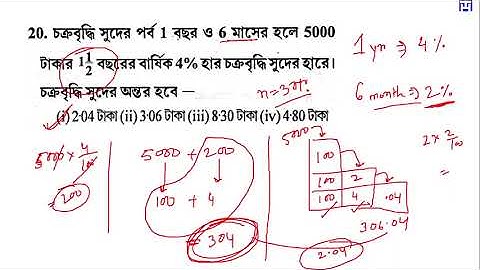 20. চক্রবৃদ্ধি সুদের পর্ব 1 বছর ও 6 মাসের হলে 5000
টাকার 1 1/2 বছরের বার্ষিক 4% হার চক্রবৃদ্ধি সুদের হারে।
চক্রবৃদ্ধি সুদের অন্তর হবে —
(i) 2·04 টাকা (ii) 3·06 টাকা (iii) 8·30 টাকা (iv) 4·80 টাকা
1 yr ⇒ 4%
6 month ⇒ 2%
5000 × 4/100
= 200
5000 + 200
100 + 4
= 304
5000
100
100 2
100 4 .04
306.04
2.04
2 × 2/100
=